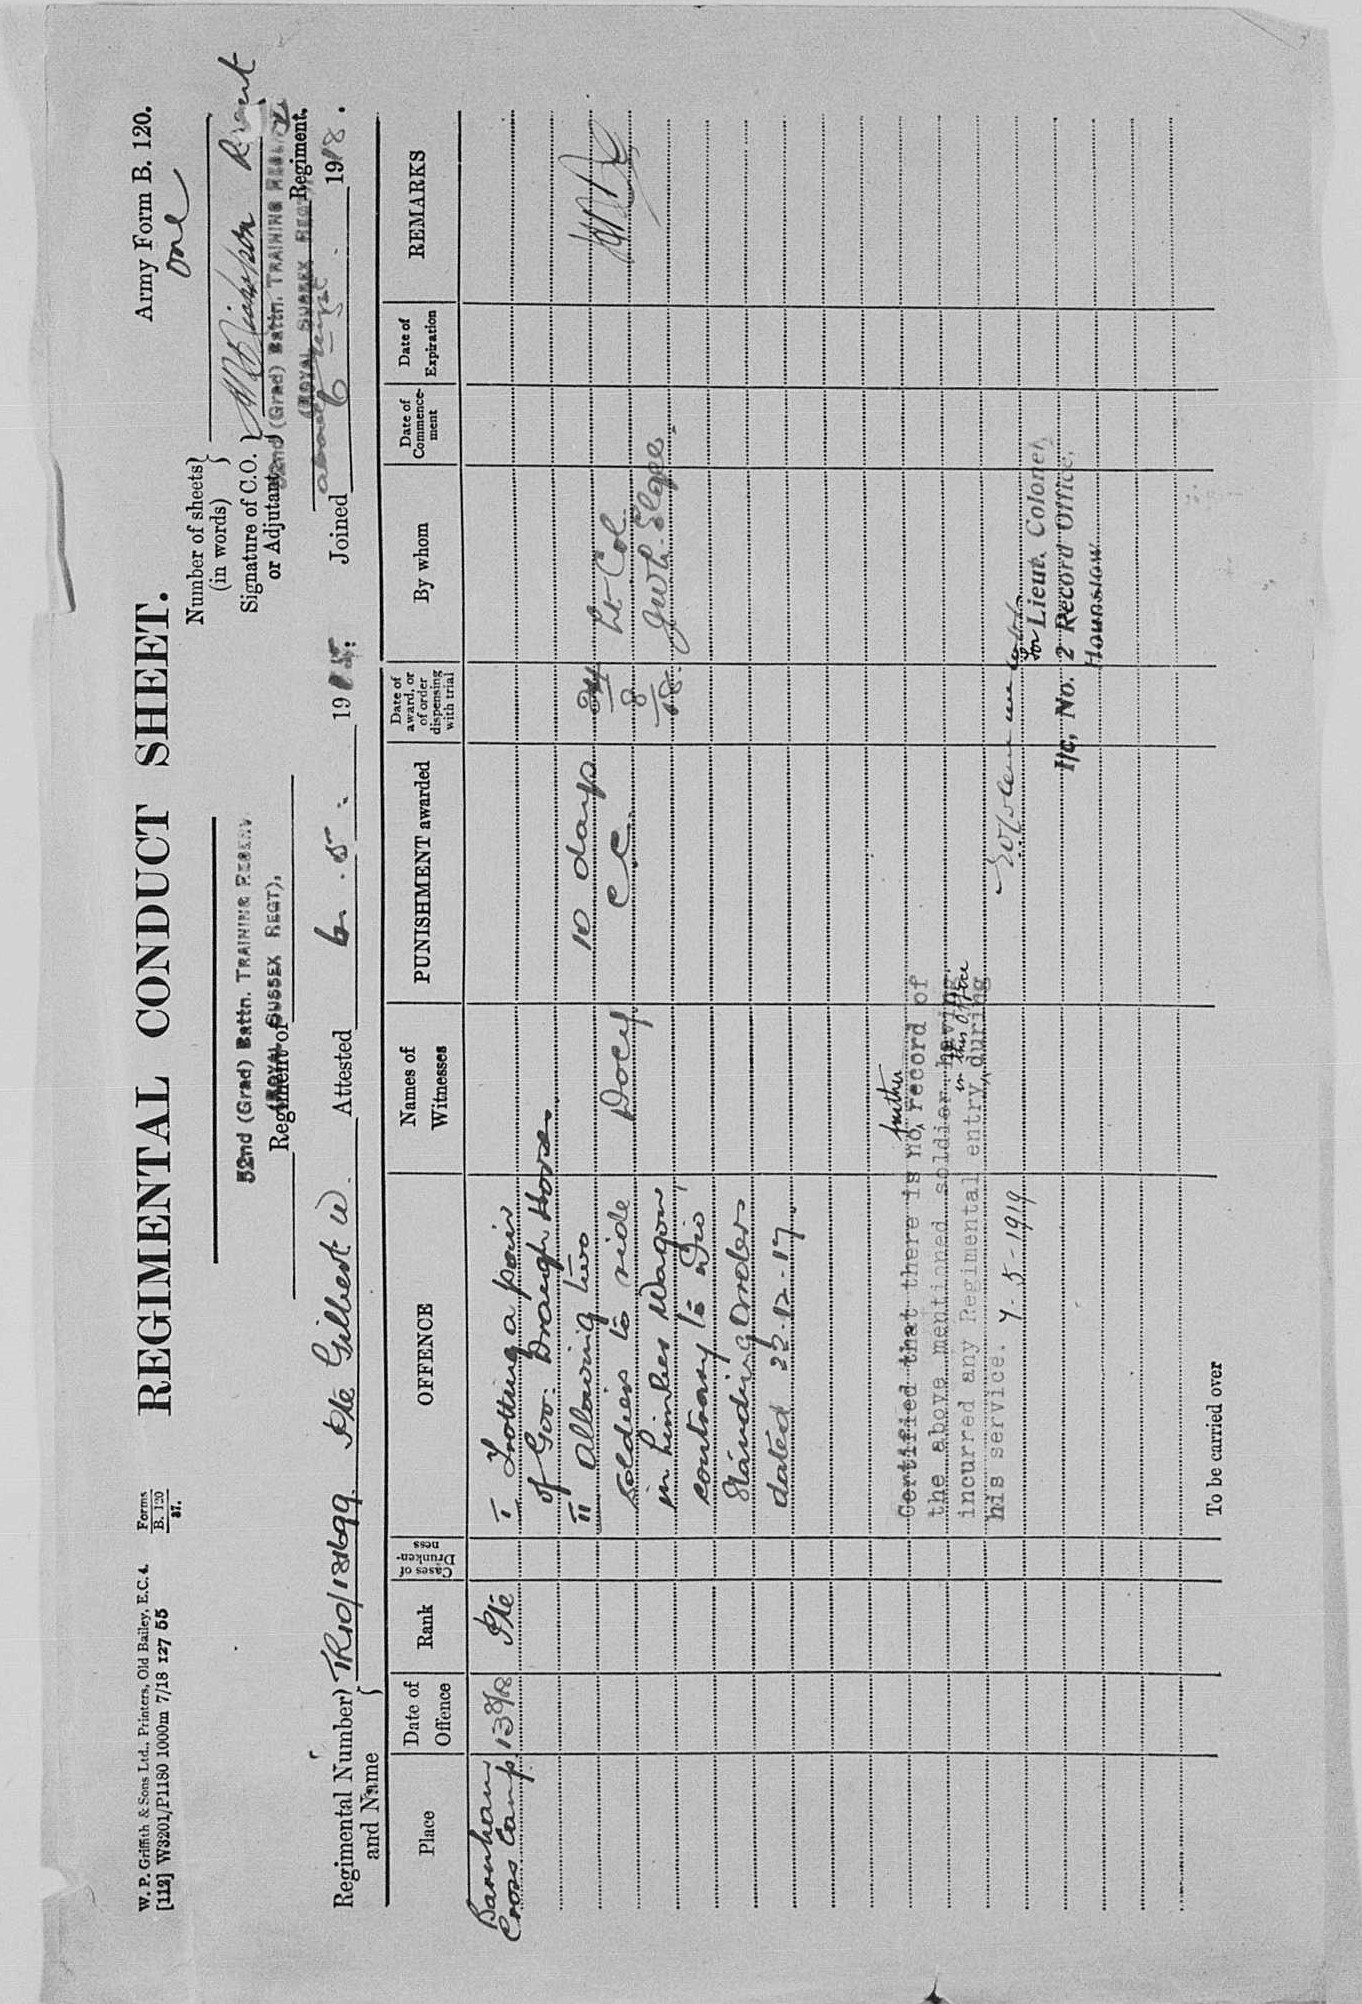 W. P. Griffith & Sons Ltd., Printers, Old Bailey, E.C. 4.
[112] W3201/P1180 1000m 7/18 127 55
Forms
B. 120
37.
REGIMENTAL CONDUCT SHEET.
Army Form B. 120.
Number of sheets
(in words)
one
52nd (Grad) Battn. TRAINING RESERV
(ROYAL SUSSEX REGT),
Regiment of
Signature of C.O.
or Adjutant
52nd (Grad) Battn. TRAINING
(ROYAL SUSSEX REGT)
Regiment.
Regimental Number
and Name
TR10/181699 Pte Gilbert W. Attested 6. 5. 19 Joined 6 1918.
Place
Date of
Offence
Rank
Cases of
Drunken-
ness
OFFENCE
Names of
Witnesses
PUNISHMENT awarded
Date of
award, or
of order
dispensing
with trial
By whom
Date of
Commence-
ment
Date of
Expiration
REMARKS
Barnham
Cross Camp
13/8/18
Pte
I Trotting a pair
of Gov: Draugh Horses
II Allowing two
soldiers to ride
in Limber Wagon
contrary to Div
Standing Orders
dated 22-12-17.
Docy
10 days
C.C.
24
8
18
Lt Col
Certified that there is no further record of
the above mentioned soldier having
incurred any Regimental entry in this office during
his service. 7-5-1919
for Lieut. Colonel,
I/c, No. 2 Record Office,
Hounslow
To be carried over